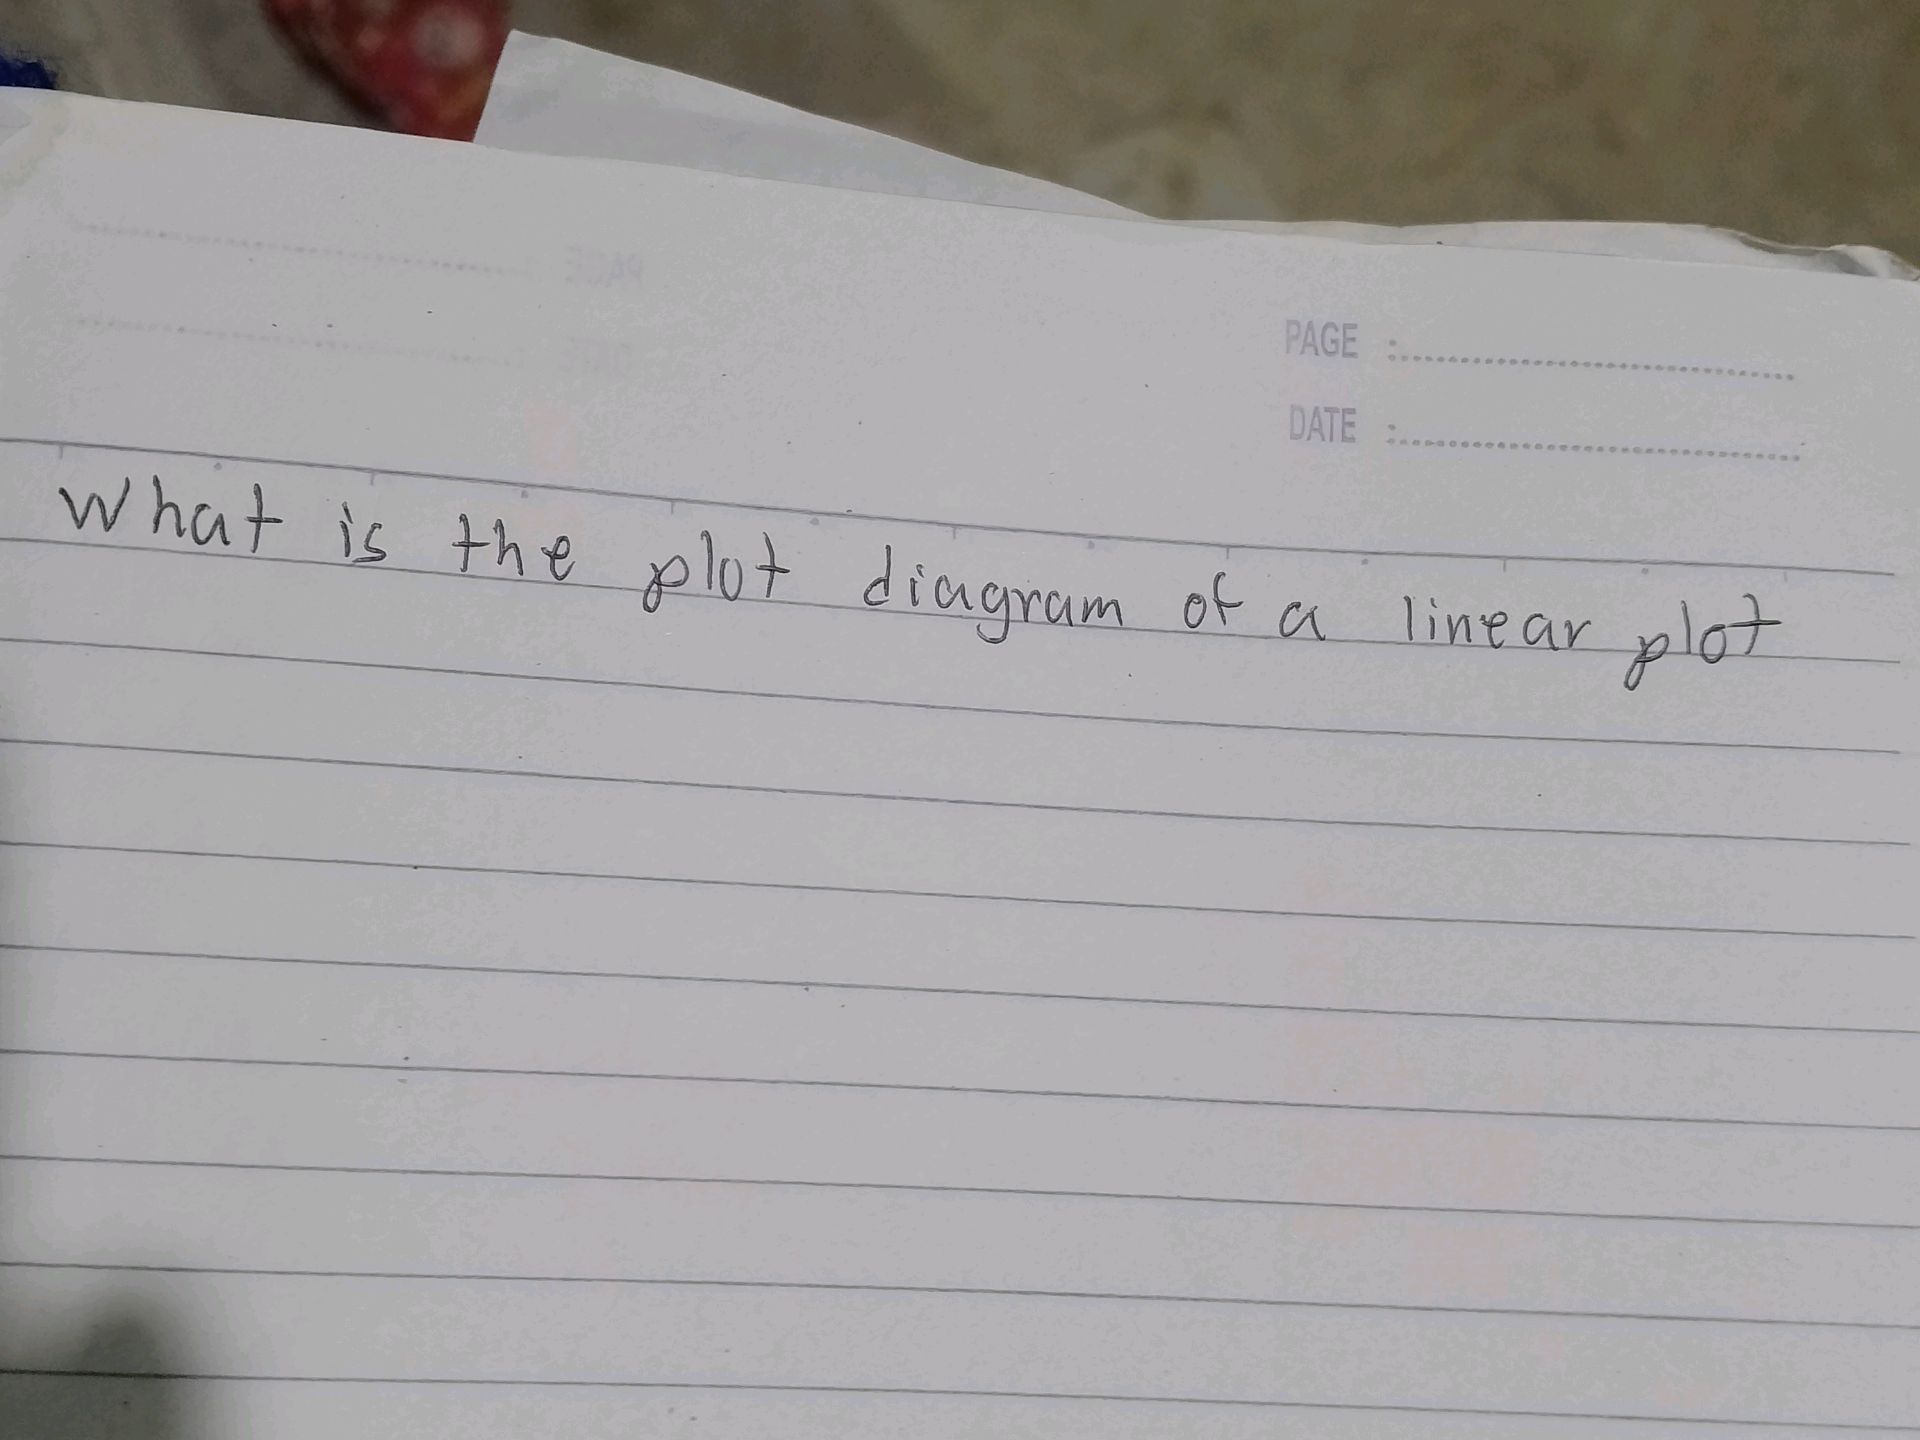 PAGE :
DATE :
What is the plot diagram of a linear plot